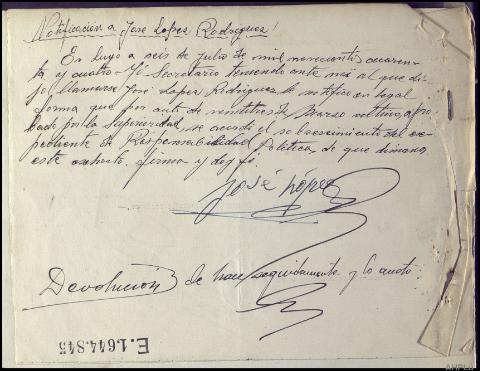 Notificación a José López Rodríguez/
En Lugo a seis de julio de mil novecientos cuaren-
ta y cuatro.- Yo Secretario teniendo ante mi al que di-
jo llamarse José López Rodríguez le notifico en legal
forma que por auto de veintitres de Marzo ultimo, apro-
bado por la Superioridad, se acordó el sobreseimiento del ex-
pediente de Responsabilidad Política, de que dimana
este exhorto, firma y doy fé.
José López
Devolución se hace seguidamente y lo anoto.
E.1.644.845